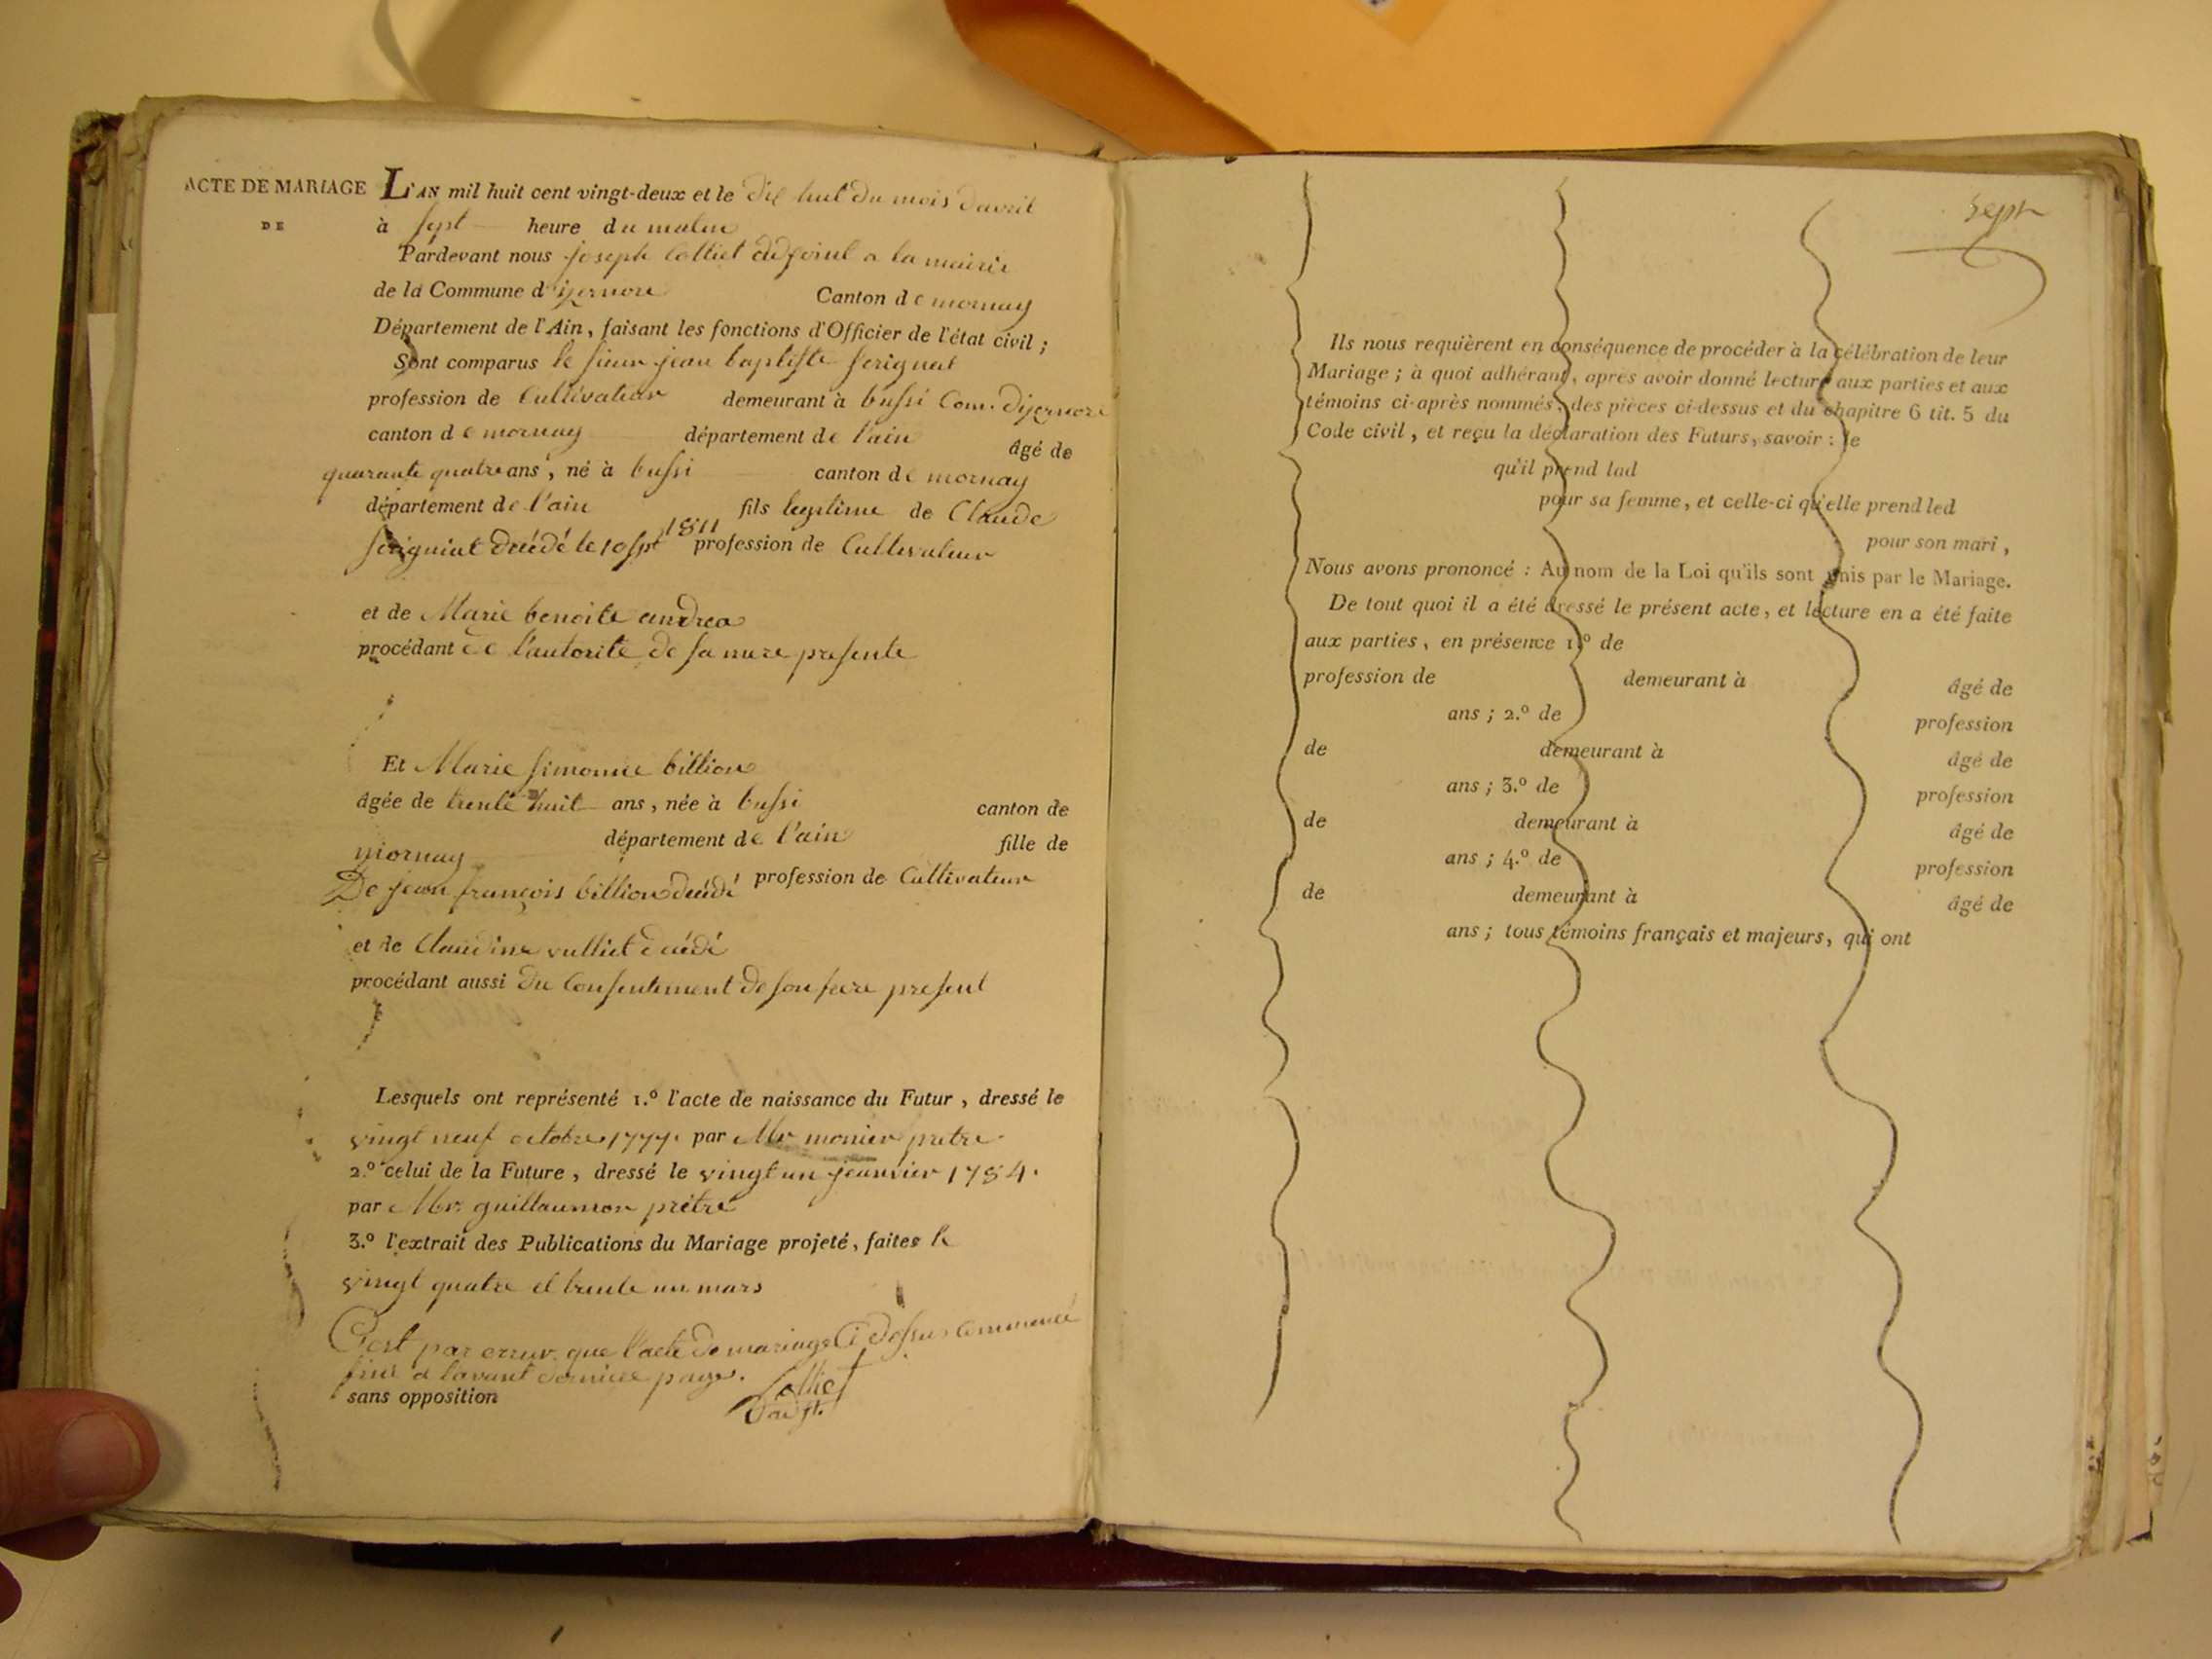 ACTE DE MARIAGE
DE
L'AN mil huit cent vingt-deux et le dix huit du mois davril
à sept heure du matin
Pardevant nous joseph Colliet adjoint a la mairie
de la Commune d'izernore Canton de mornay
Département de l'Ain, faisant les fonctions d'Officier de l'état civil ;
Sont comparus le sieur jean baptiste serignat
profession de Cultivateur demeurant à bussi Com. dizernore
canton de mornay département de l'ain âgé de
quarante quatre ans, né à bussi canton de mornay
département de l'ain fils legitime de Claude
serigniat décédé le 10 spt 1811 profession de Cultivateur
et de Marie benoite andrea
procédant de l'autorité de sa mere presente
Et Marie simonne billion
âgée de trente huit ans, née à bussi canton de
mornay département de l'ain fille de
De jean françois billion décédé profession de Cultivateur
et de Claudine vulliet décédé
procédant aussi du Consentement de son frere present
Lesquels ont représenté 1.º l'acte de naissance du Futur, dressé le
vingt neuf octobre 1777. par Mr monier pretre
2.º celui de la Future, dressé le vingt un janvier 1784.
par Mr guillaumon prêtre
3.º l'extrait des Publications du Mariage projeté, faites le
vingt quatre et trente un mars
C'est par erreur que l'acte de mariage Ci dessus Commencé
finie a l'avant dernière page.
sans opposition
Colliet
adjt.
sept
Ils nous requièrent en conséquence de procéder à la célébration de leur
Mariage ; à quoi adhérant, après avoir donné lecture aux parties et aux
témoins ci-après nommés, des pièces ci-dessus et du chapitre 6 tit. 5 du
Code civil, et reçu la déclaration des Futurs, savoir : le
qu'il prend lad
pour sa femme, et celle-ci qu'elle prend led
pour son mari,
Nous avons prononcé : Au nom de la Loi qu'ils sont unis par le Mariage.
De tout quoi il a été dressé le présent acte, et lecture en a été faite
aux parties, en présence 1.º de
profession de demeurant à âgé de
ans ; 2.º de profession
de demeurant à âgé de
ans ; 3.º de profession
de demeurant à âgé de
ans ; 4.º de profession
de demeurant à âgé de
ans ; tous témoins français et majeurs, qui ont